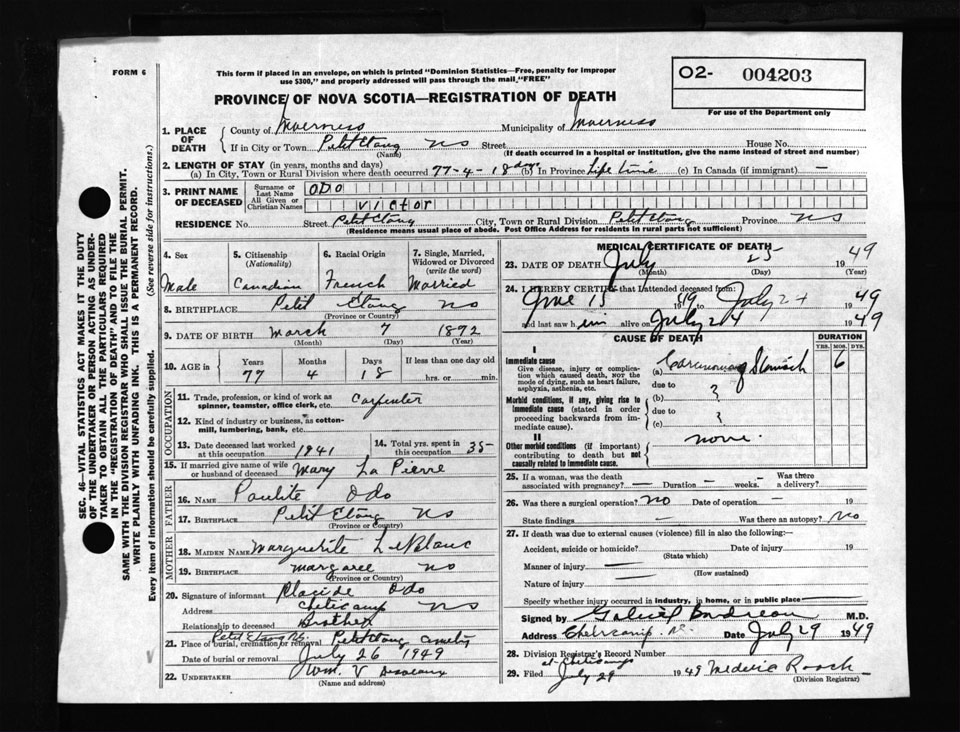 FORM 6
This form if placed in an envelope, on which is printed "Dominion Statistics—Free, penalty for improper
use $300," and properly addressed will pass through the mail "FREE"
O2- 004203
For use of the Department only
PROVINCE OF NOVA SCOTIA—REGISTRATION OF DEATH
1. PLACE OF DEATH
County of Inverness Municipality of Inverness
If in City or Town Petit Etang NS Street House No.
(Name) (If death occurred in a hospital or institution, give the name instead of street and number)
2. LENGTH OF STAY (in years, months and days)
(a) In City, Town or Rural Division where death occurred 77-4-18 days (b) In Province Life time (c) In Canada (if immigrant) —
3. PRINT NAME OF DECEASED
Surname or Last Name ODO
All Given or Christian Names victor
RESIDENCE No. Street Petit Etang City, Town or Rural Division Petit Etang Province NS
(Residence means usual place of abode. Post Office Address for residents in rural parts not sufficient)
4. Sex Male
5. Citizenship (Nationality) Canadian
6. Racial Origin French
7. Single, Married, Widowed or Divorced (write the word) Married
8. BIRTHPLACE Petit Etang NS
(Province or Country)
9. DATE OF BIRTH March 7 1872
(Month) (Day) (Year)
10. AGE in Years 77 Months 4 Days 18 If less than one day old hrs. or min.
OCCUPATION
11. Trade, profession, or kind of work as spinner, teamster, office clerk, etc. Carpenter
12. Kind of industry or business, as cotton-mill, lumbering, bank, etc.
13. Date deceased last worked at this occupation 1941
14. Total yrs. spent in this occupation 35
15. If married give name of wife or husband of deceased Mary La Pierre
FATHER
16. NAME Paulite Odo
17. BIRTHPLACE Petit Etang NS
(Province or Country)
MOTHER
18. MAIDEN NAME Marguerite LeBlanc
19. BIRTHPLACE Margaree NS
(Province or Country)
20. Signature of informant Placide Odo
Address Cheticamp NS
Relationship to deceased Brother
21. Place of burial, cremation or removal Petit Etang NS. Petit Etang
Date of burial or removal July 26 1949
22. UNDERTAKER Wm. V
(Name and address)
MEDICAL CERTIFICATE OF DEATH
23. DATE OF DEATH July 25 1949
(Month) (Day) (Year)
24. I HEREBY CERTIFY that I attended deceased from:
June 15 1949 to July 24 1949
and last saw him alive on July 24 1949
CAUSE OF DEATH
DURATION
YRS. MOS. DYS.
I
Immediate cause
Give disease, injury or complication which caused death, NOT the mode of dying, such as heart failure, asphyxia, asthenia, etc.
(a) Carcinoma of Stomach 6
due to
Morbid conditions, if any, giving rise to immediate cause (stated in order proceeding backwards from immediate cause).
(b) ?
due to ?
(c)
II
Other morbid conditions (if important) contributing to death but not causally related to immediate cause.
none.
25. If a woman, was the death associated with pregnancy? — Duration — weeks. Was there a delivery?
26. Was there a surgical operation? NO Date of operation — 19
State findings — Was there an autopsy? No
27. If death was due to external causes (violence) fill in also the following:
Accident, suicide or homicide? Date of injury 19
(State which)
Manner of injury —
(How sustained)
Nature of injury —
Specify whether injury occurred in industry, in home, or in public place
Signed by Gabriel Boudreau M.D.
Address Cheticamp. NS. Date July 29 1949
28. Division Registrar's Record Number
29. Filed at Cheticamp July 29 1949 Roach
(Division Registrar)
SEC. 46—VITAL STATISTICS ACT MAKES IT THE DUTY
OF THE UNDERTAKER OR PERSON ACTING AS UNDER-
TAKER TO OBTAIN ALL THE PARTICULARS REQUIRED
IN THE "REGISTRATION OF DEATH" AND TO FILE THE
SAME WITH THE DIVISION REGISTRAR WHO SHALL ISSUE THE BURIAL PERMIT.
WRITE PLAINLY WITH UNFADING INK. THIS IS A PERMANENT RECORD.
Every item of information should be carefully supplied. (See reverse side for instructions.)